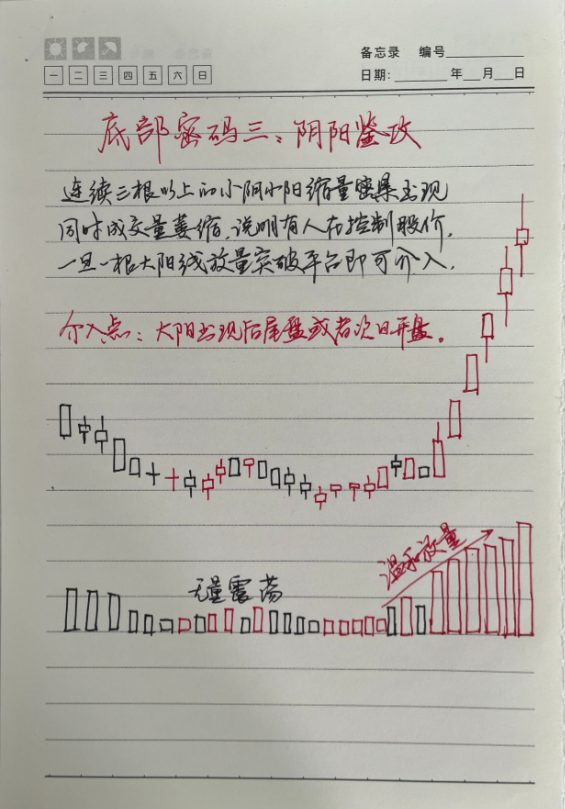 备忘录 编号
一 二 三 四 五 六 日
日期: 年 月 日
底部密码三:阴阳鉴攻
连续三根以上的小阴小阳缩量密集出现
同时成交量萎缩,说明有人在控制股价,
一旦一根大阳线放量突破平台即可介入.
介入点:大阳出现后尾盘或者次日开盘。
温和放量
无量震荡